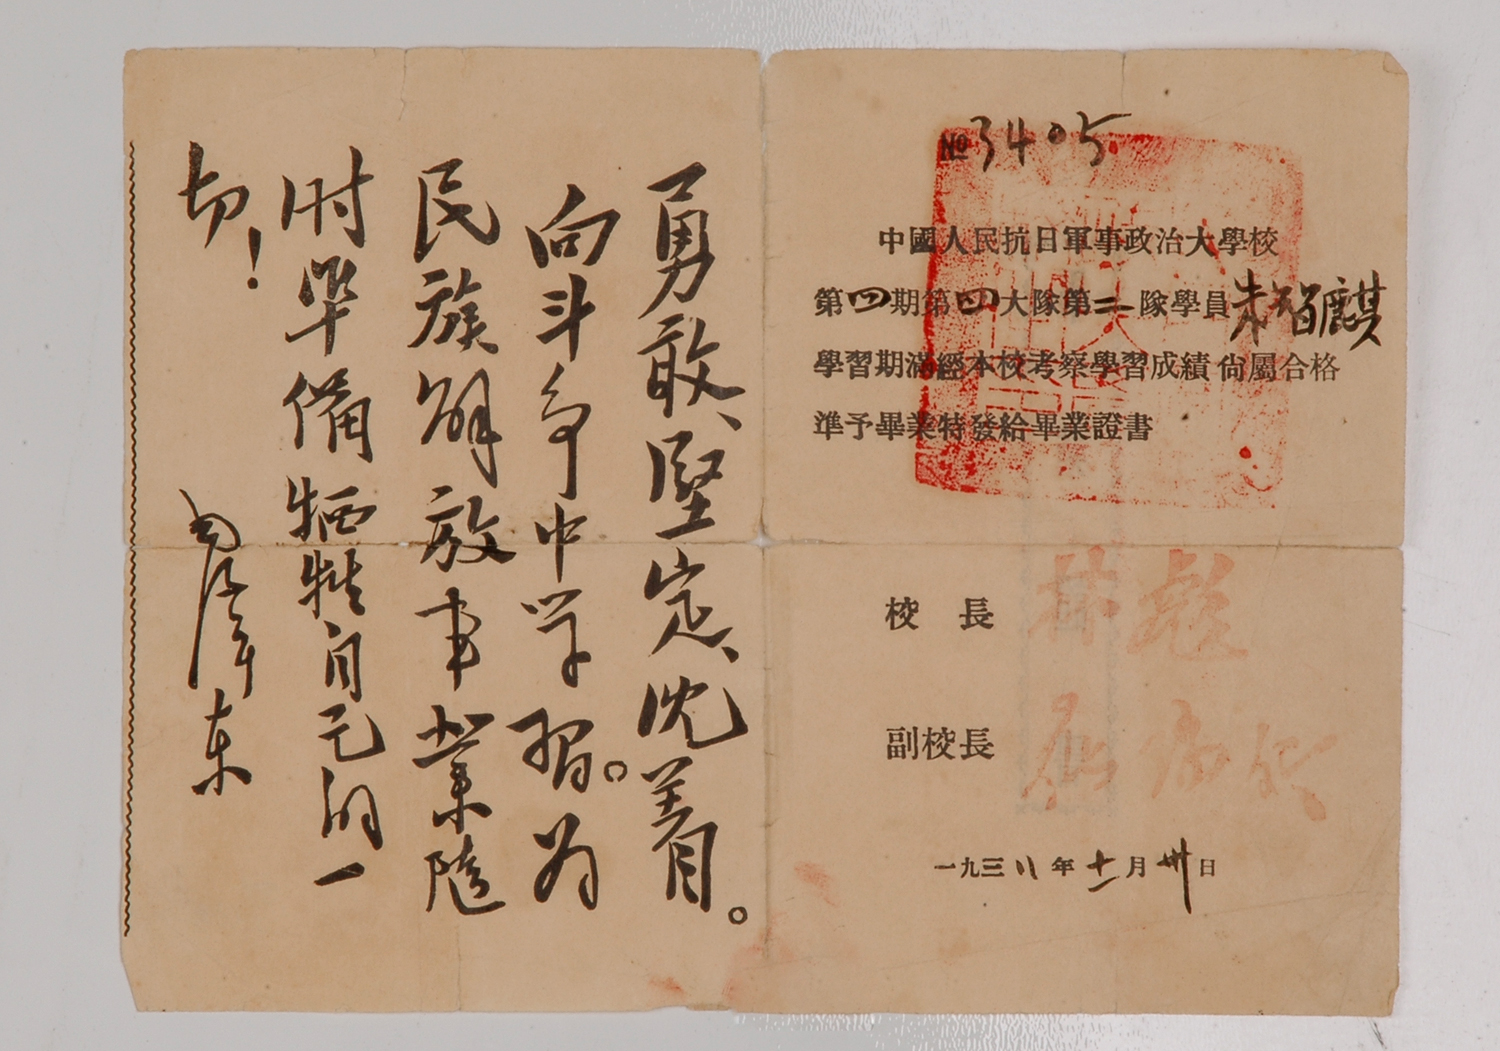 №3405
中國人民抗日軍事政治大學校
第四期第四大隊第二隊學員朱智麒
學習期滿經本校考察學習成績尙屬合格
準予畢業特發給畢業證書
校長 林彪
副校長 羅瑞卿
一九三八年十一月卅日
勇敢、堅定、沈着。
向斗争中学習。为
民族解放事業隨
时準備牺牲自己的一
切！
毛澤东